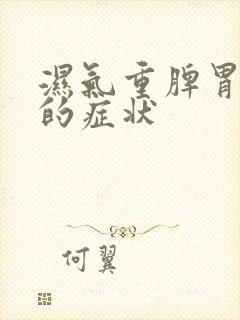 濕氣重脾胃
的症状
何翼